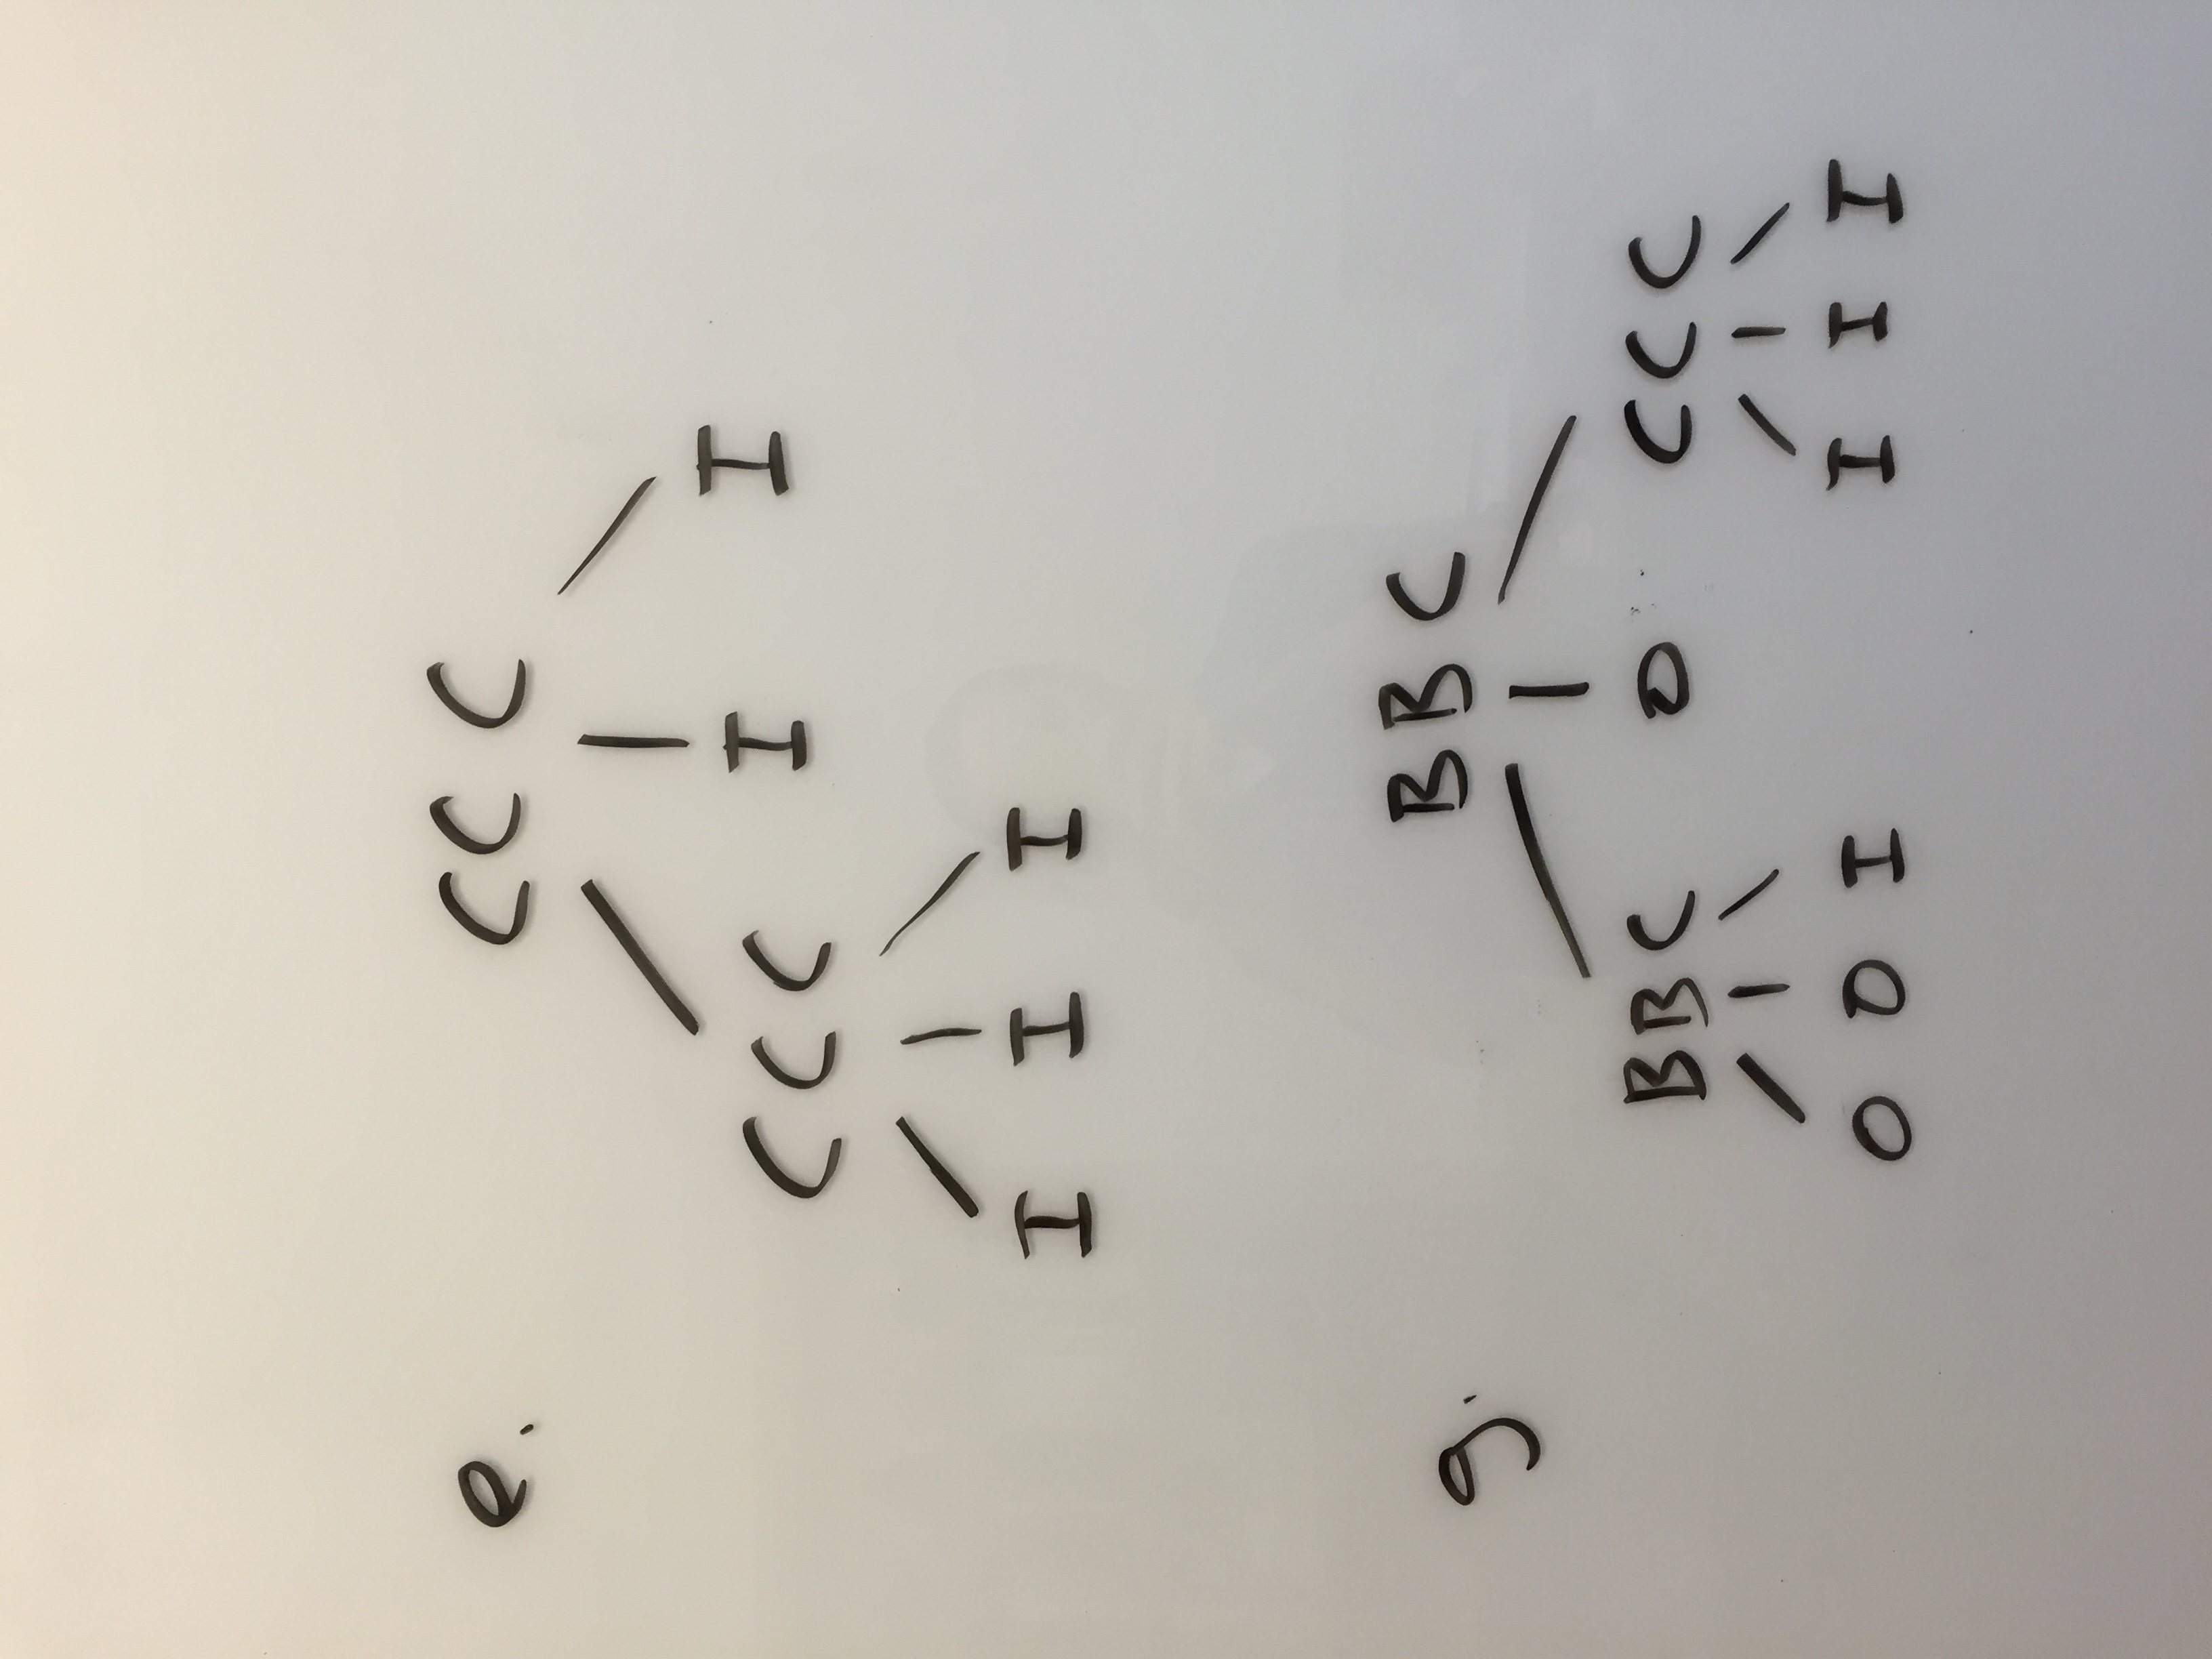 e. C C C
C C C I I
I I I
g. B B C
B B C O C C C
O O I I I I